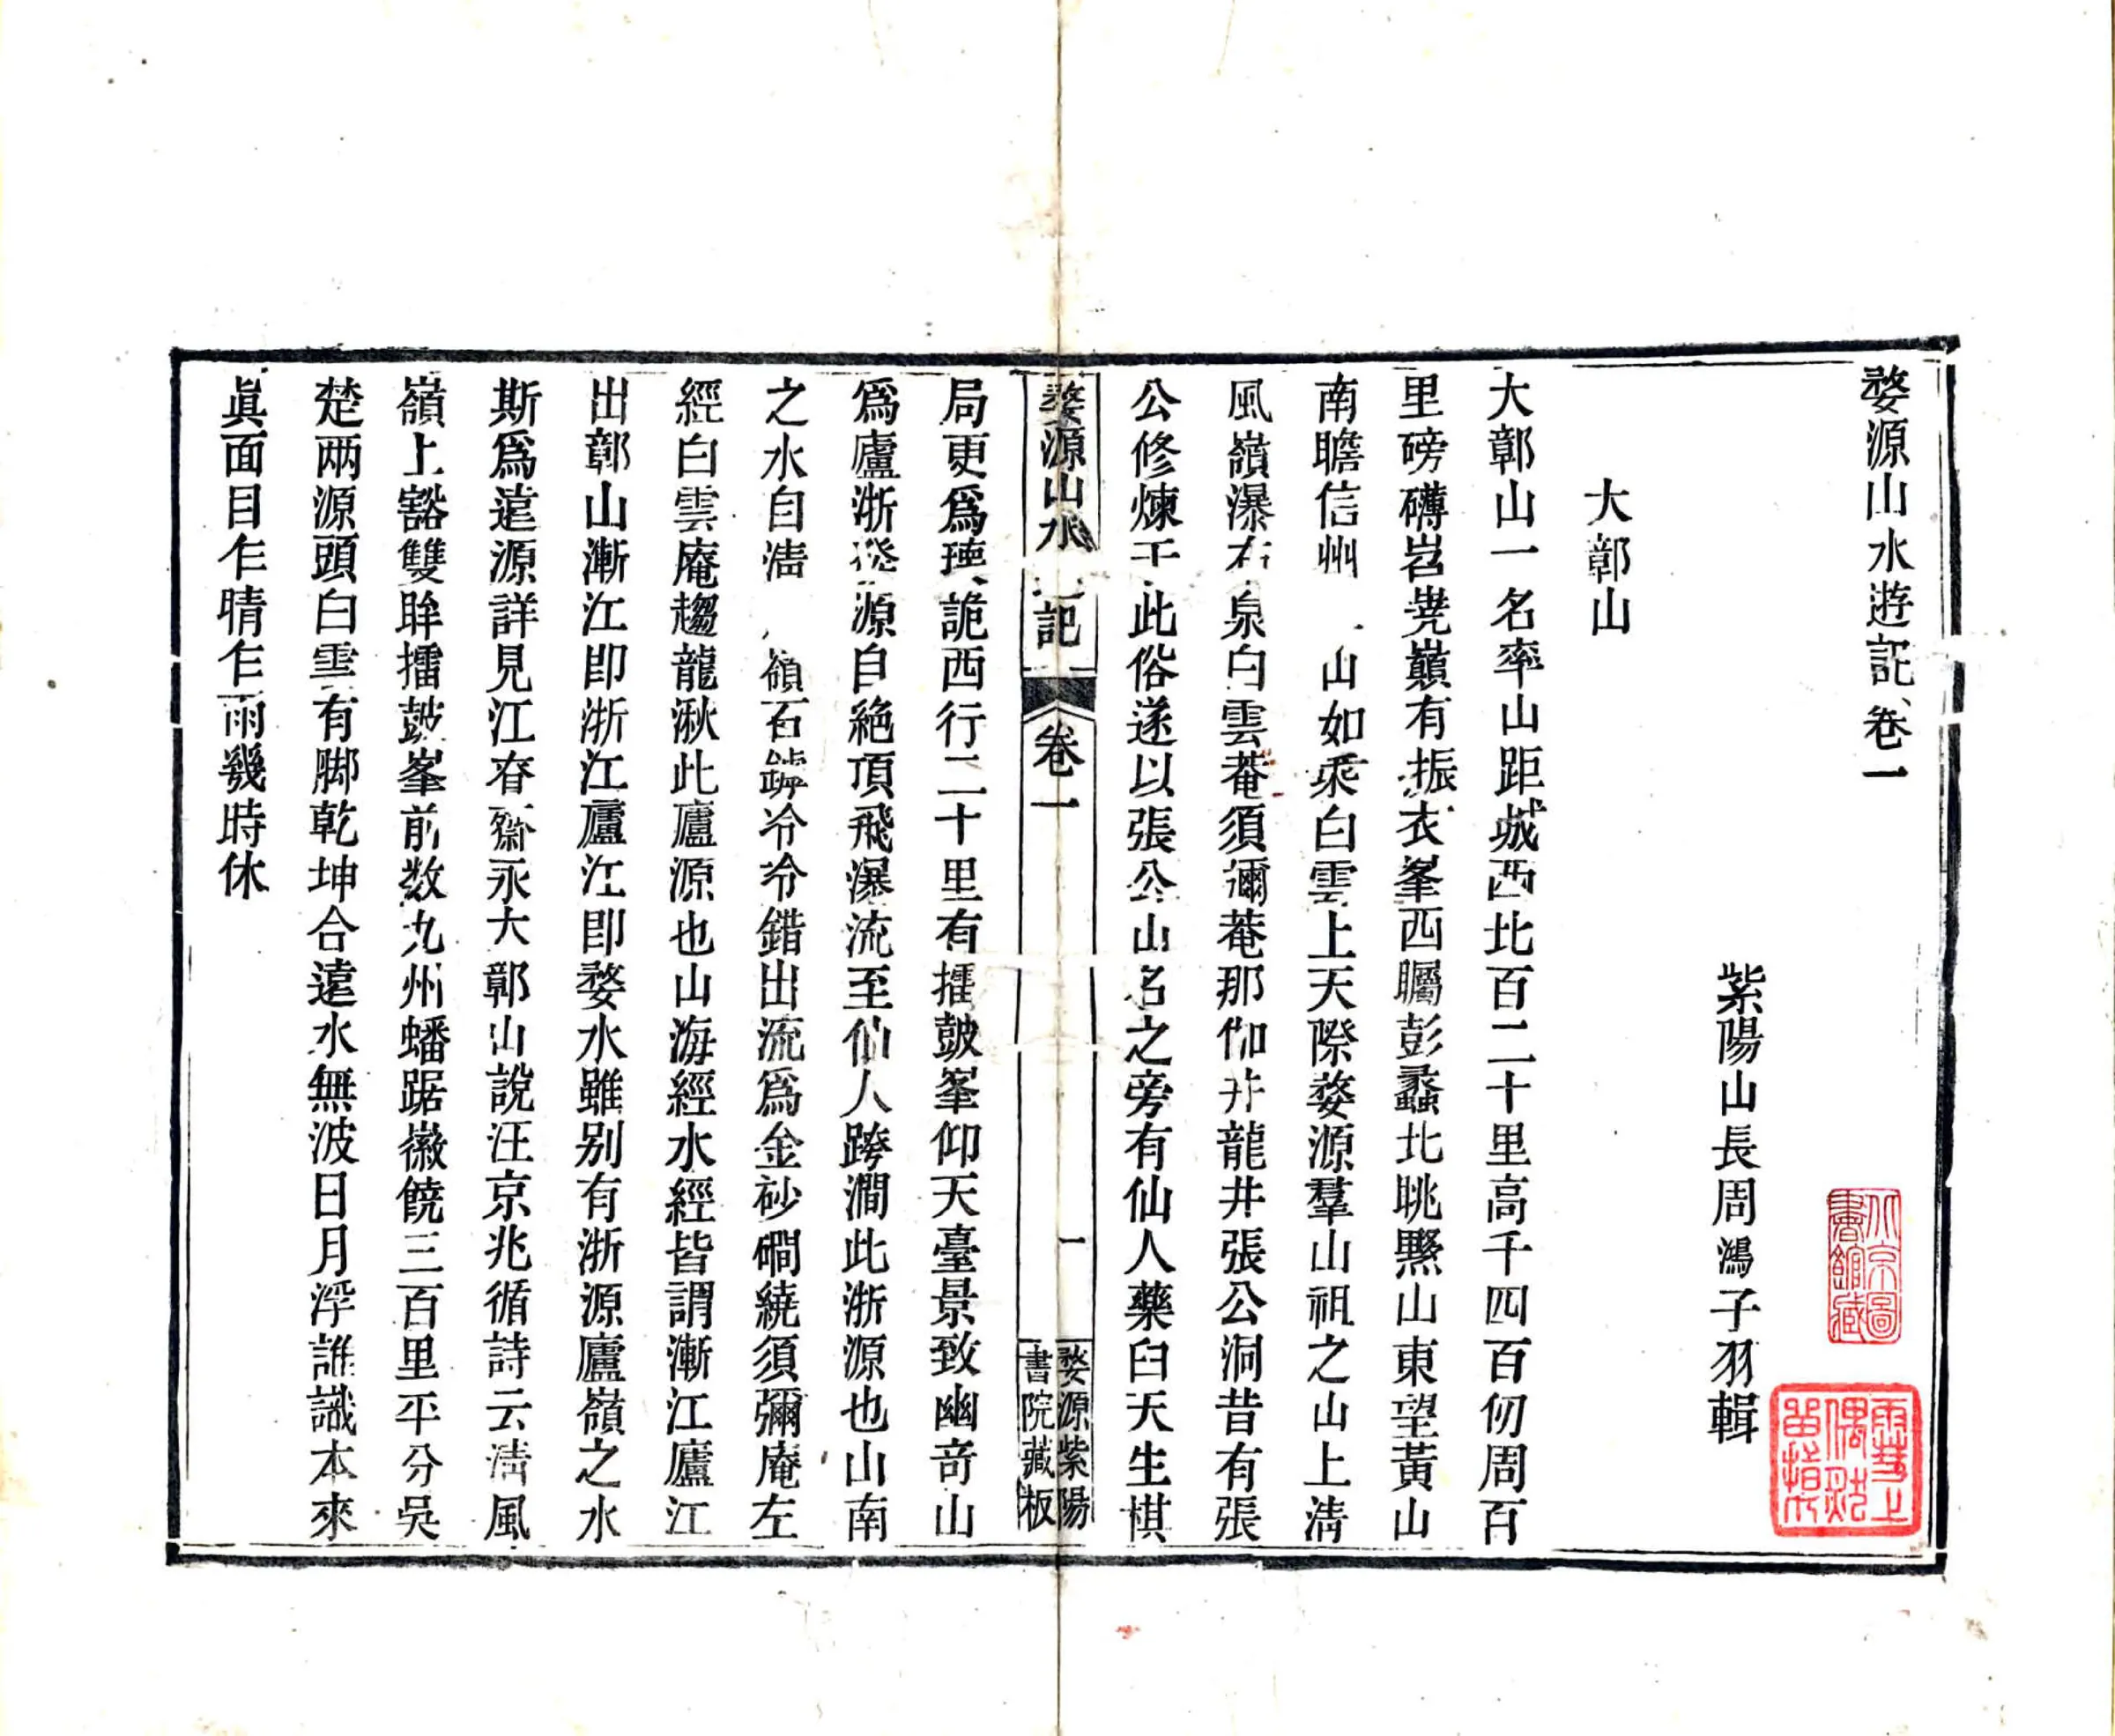 婺源山水遊記卷一
紫陽山長周鴻子羽輯
大鄣山
大鄣山一名率山距城西北百二十里高千四百仞周百
里磅礴岧嶤巔有振衣峯西矚彭蠡北眺黟山東望黃山
南瞻信州山如乘白雲上天際婺源羣山祖之山上清
風嶺瀑布泉白雲菴須彌菴那伽井龍井張公洞昔有張
公修煉于此俗遂以張公山名之旁有仙人藥臼天生棋
婺源山水記
卷一
一
婺源紫陽
書院藏板
局更爲詭西行二十里有擂鼓峯仰天臺景致幽奇山
爲廬浙發源自絶頂飛瀑流至仙人跨澗此浙源也山南
之水自淸嶺石罅冷冷錯出流爲金砂磵繞須彌庵左
經白雲庵趨龍湫此廬源也山海經水經皆謂漸江廬江
出鄣山漸江卽浙江廬江卽婺水雖別有浙源廬嶺之水
斯爲遠源詳見江眘齋永大鄣山說汪京兆循詩云淸風
嶺上豁雙眸擂鼓峯前数九州蟠踞徽饒三百里平分吳
楚兩源頭白雲有脚乾坤合遠水無波日月浮誰識本來
眞面目乍晴乍雨幾時休
北京圖
書館藏